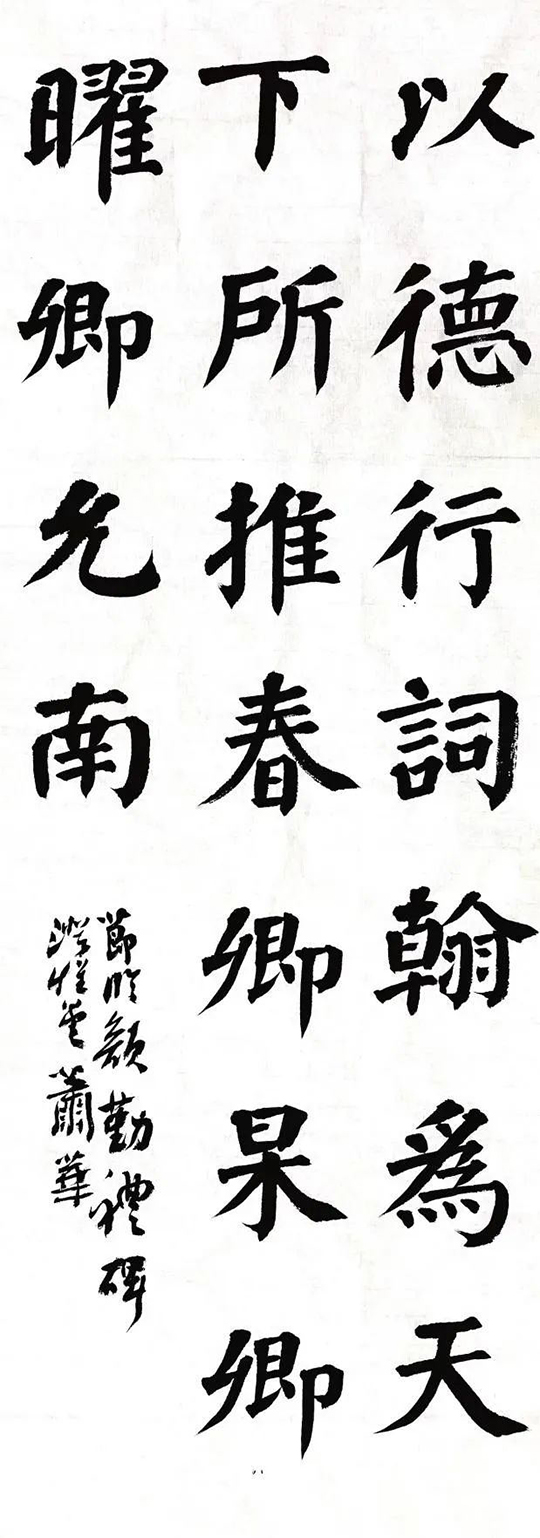 以德行詞翰為天
下所推春卿杲卿
曜卿允南
節臨顏勤禮碑
蕭華